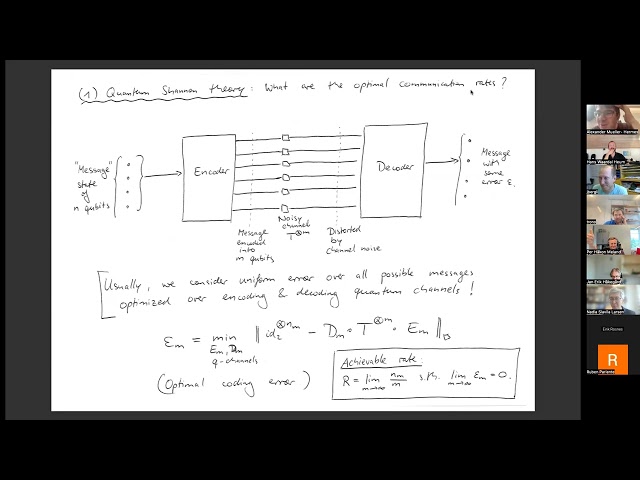 (1) Quantum Shannon theory: What are the optimal communication rates?
"Message"
state
of
n qubits
Encoder
Noisy
channel
T⊗m
Message
encoded
into
m qubits
Distorted
by
channel noise
Decoder
Message
with
some
error ε.
Usually, we consider uniform error over all possible messages
optimized over encoding & decoding quantum channels!
εm = min ‖ id2⊗nm − Dm ∘ T⊗m ∘ Em ‖◇
Em, Dm
q-channels
(Optimal coding error)
Achievable rate:
R = lim m→∞ nm/m s.th. lim m→∞ εm = 0.
Alexander Mueller- Hermes
Per Håkon Meland
Jan Erik Håkegård
Nadia Slavila Larsen
Erik Rosnes
R
Ruben Pariente